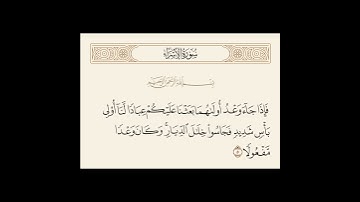 سُورَةُ الإِسْرَاءِ
بِسْمِ اللَّهِ الرَّحْمَٰنِ الرَّحِيمِ
فَإِذَا جَآءَ وَعْدُ أُولَىٰهُمَا بَعَثْنَا عَلَيْكُمْ عِبَادًا لَّنَآ أُو۟لِى
بَأْسٍ شَدِيدٍ فَجَاسُوا۟ خِلَٰلَ ٱلدِّيَارِ ۚ وَكَانَ وَعْدًا
مَّفْعُولًا ۝٥